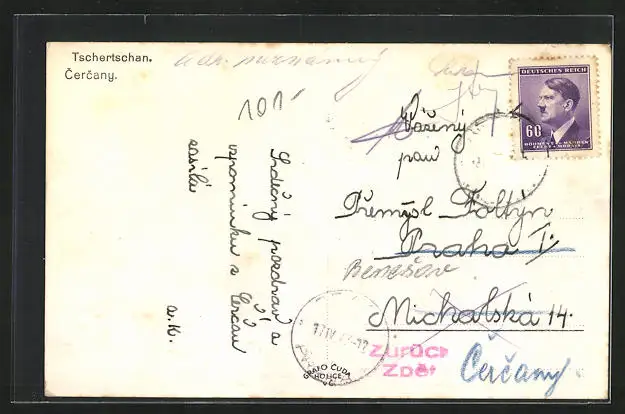 Tschertschan.
Čerčany.
Adr. neznámý
101-
DEUTSCHES REICH
60
BÖHMEN U. MÄHREN
Vážený
pan
Přemysl Foltýn
Praha I.
Benešov
Michalská 14.
Čerčany
Zurück
Zpět
Srdečný pozdrav a
vzpomínku z Čerčan
zasílá
GRAFO ČUDA
HOLICE